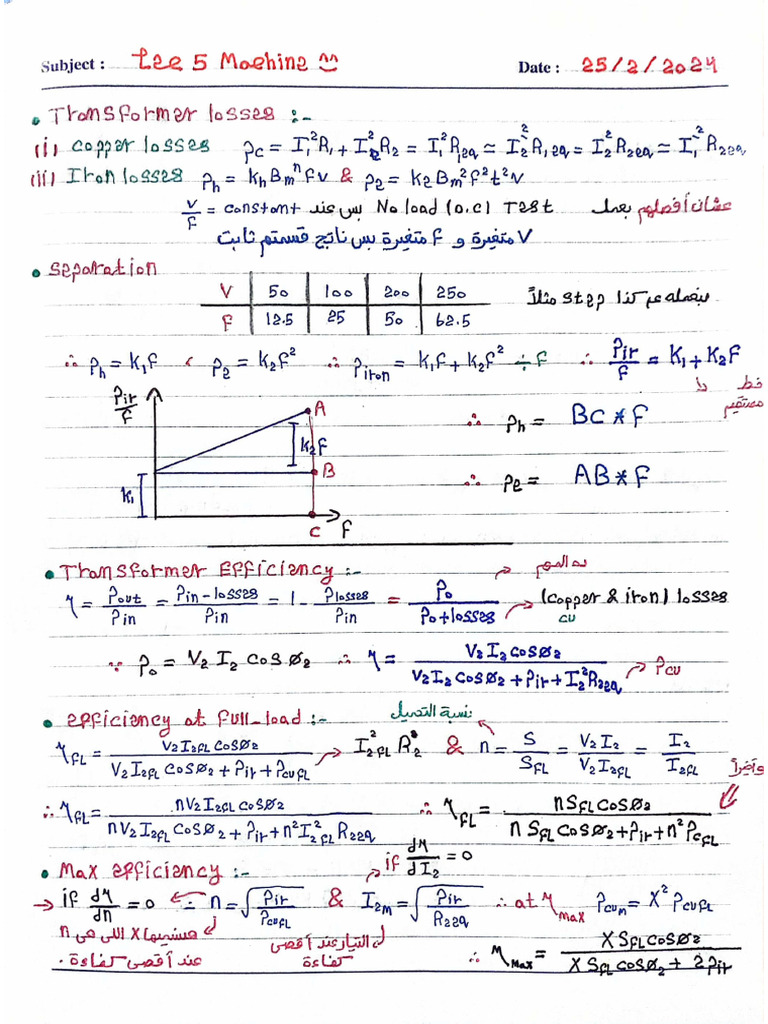 Subject : Lec 5 Machine Date : 25/2/2024
• Transformer losses :-
(i) copper losses Pc = I₁²R₁ + I₂²R₂ = I₁²R₁eq ≃ I₂'²R₁eq = I₂²R₂eq ≃ I₁'²R₂eq
(ii) Iron losses Ph = kh Bmⁿ f v & Pe = ke Bm² f² t² v
V/f = constant بس عند No load (o.c) Test عشان أفصلهم بعمل
V متغيرة و f متغيرة بس ناتج قسمتهم ثابت
• separation
V 50 100 200 250
F 12.5 25 50 62.5
بنعمله عم كذا step مثلاً
∴ Ph = K₁f , Pe = K₂f² ∴ Piron = K₁f + K₂f² ÷ f ∴ Pir/f = K₁ + K₂f
خط مستقيم
Pir/f A
K₂f
B
K₁
C f
∴ Ph = BC * f
∴ Pe = AB * f
• Transformer Efficiency :-
ده المهم
η = Pout/Pin = Pin - losses/Pin = 1 - Plosses/Pin = Po/Po + losses (copper & iron) losses
cu
∵ Po = V₂I₂cosØ₂ ∴ η = V₂I₂cosØ₂/V₂I₂cosØ₂ + Pir + I₂²R₂eq Pcu
• efficiency at full-load :- نسبة التحميل
ηFL = V₂I₂FL cosØ₂/V₂I₂FL cosØ₂ + Pir + PcuFL I₂FL² R₂ & n = S/SFL = V₂I₂/V₂I₂FL = I₂/I₂FL
وأخيراً
∴ ηFL = nV₂I₂FL cosØ₂/nV₂I₂FL cosØ₂ + Pir + n²I₂FL²R₂eq ∴ ηFL = nSFL cosØ₂/nSFL cosØ₂ + Pir + n²PcFL
• Max efficiency :- if dη/dI₂ = 0
→ if dη/dn = 0 ∴ n = √Pir/PcuFL & I₂m = √Pir/R₂eq ∴ at ηmax Pcum = X² PcuFL
هنسميها X اللى هى n عند أقصى كفاءة .
التيار عند أقصى كفاءة
∴ ηmax = X SFL cosØ₂/X SFL cosØ₂ + 2Pir